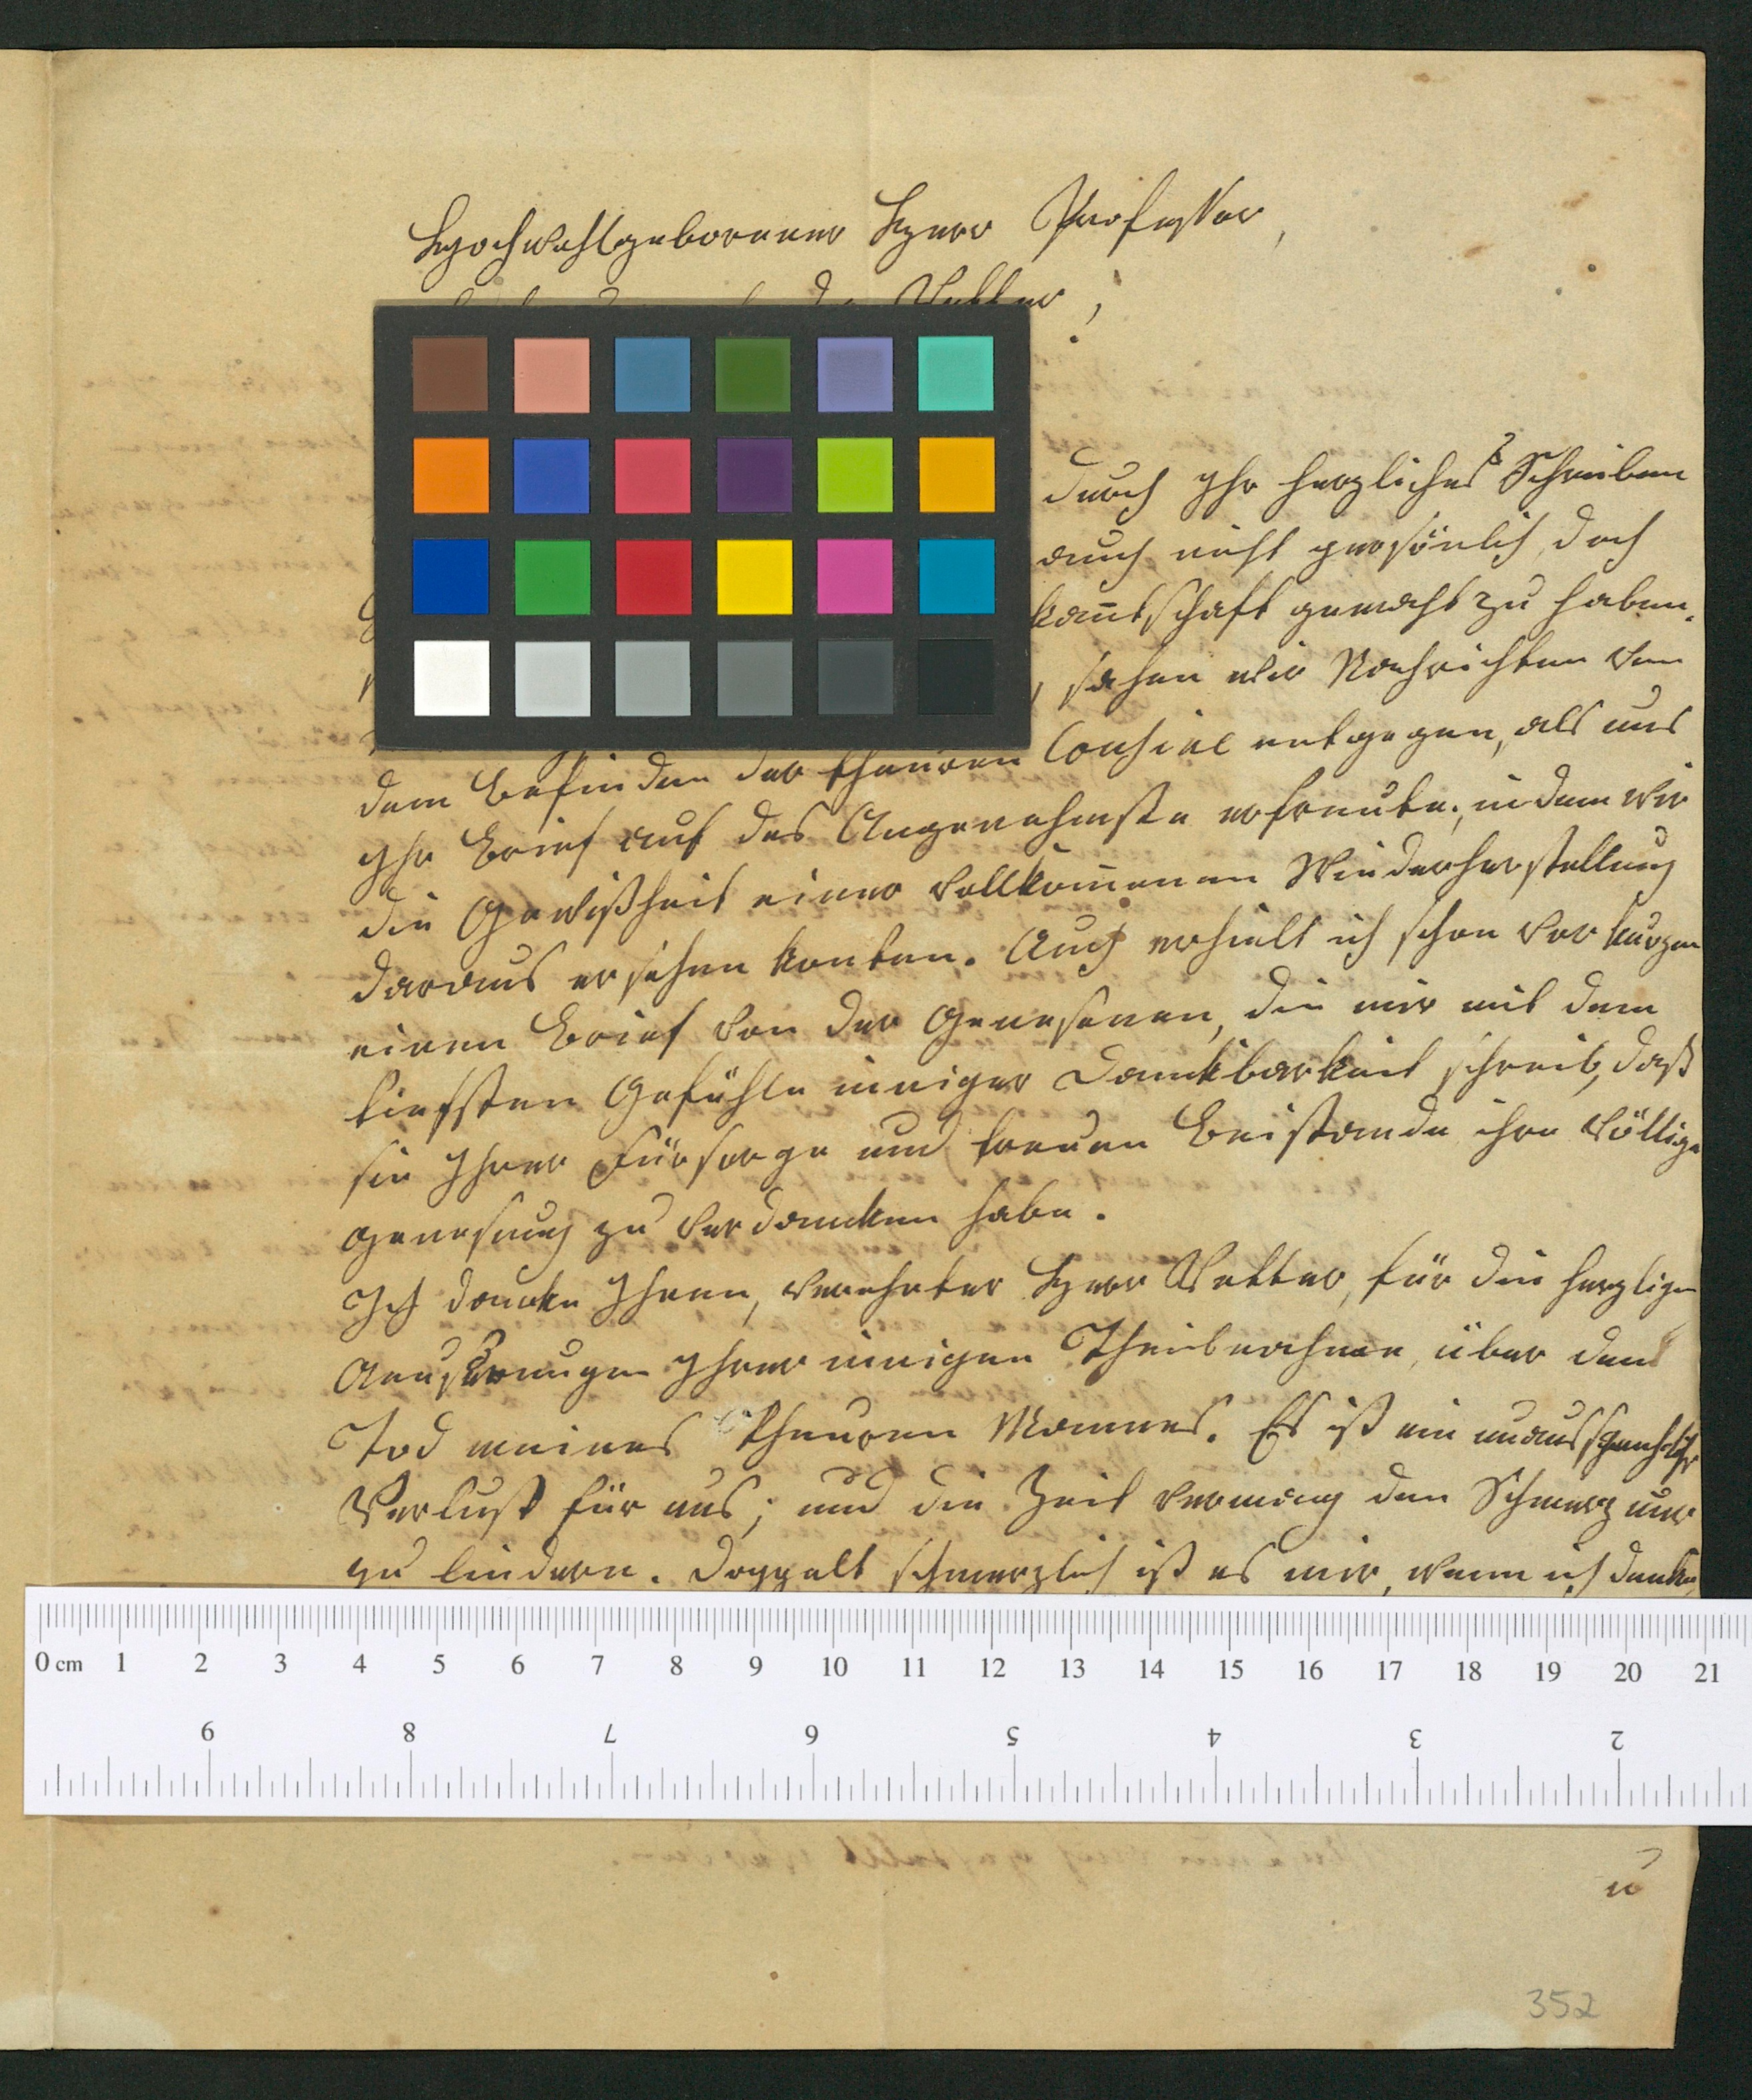 Hochwohlgeborener Herr Professor,
Vetter,
durch Ihr herzliches Schreiben
auch nicht persönlich, doch
kan̄tschaft gemacht zu haben.
, sahen wir Nachrichten von
dem Befinden der theuren Cousine entgegen, als uns
Ihr Brief auf das Angenehmste erfreute, indem wir
die Gewißheit einer vollkom̄enen Wiederherstellung
daraus ersehen konten. Auch erhielt ich schon vor kurzen
einen Brief von der Genesenen, die mir mit dem
tiefsten Gefühle inniger Dankbarkeit schreib, daß
sie Ihrer Fürsorge und treuen Beistande ihre völlige
Genesung zu verdancken habe.
Ich dancke Ihnen, verehrter Herr Vetter, für die herzligen
Aeuserungen Ihrer innigen Theilnahme, über den
Tod meines theuren Mannes. Es ist ein
Verlust für uns; und die Zeit vermag den Schmerz nur
zu lindern. Doppelt schmerzlich ist es mir, wenn ich denke,
0 cm 1 2 3 4 5 6 7 8 9 10 11 12 13 14 15 16 17 18 19 20 21
9 8 7 6 5 4 3 2
352